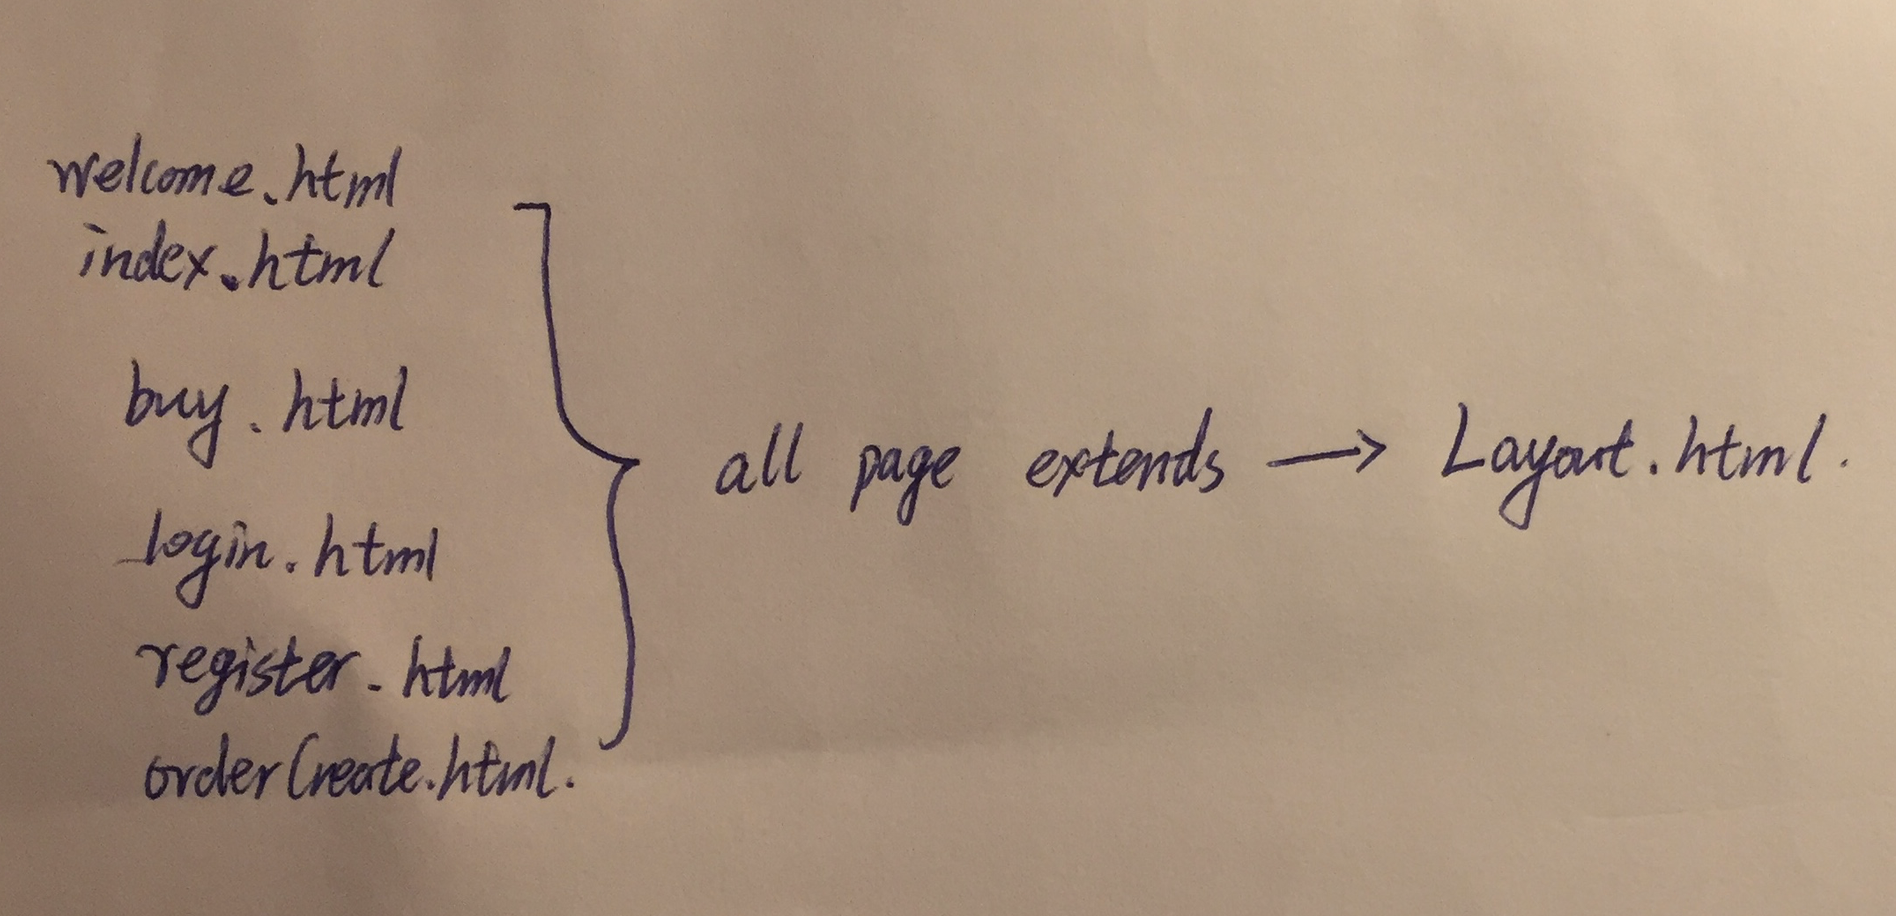 welcome.html
index.html
buy.html
login.html
register.html
orderCreate.html.
all page extends → Layout.html.